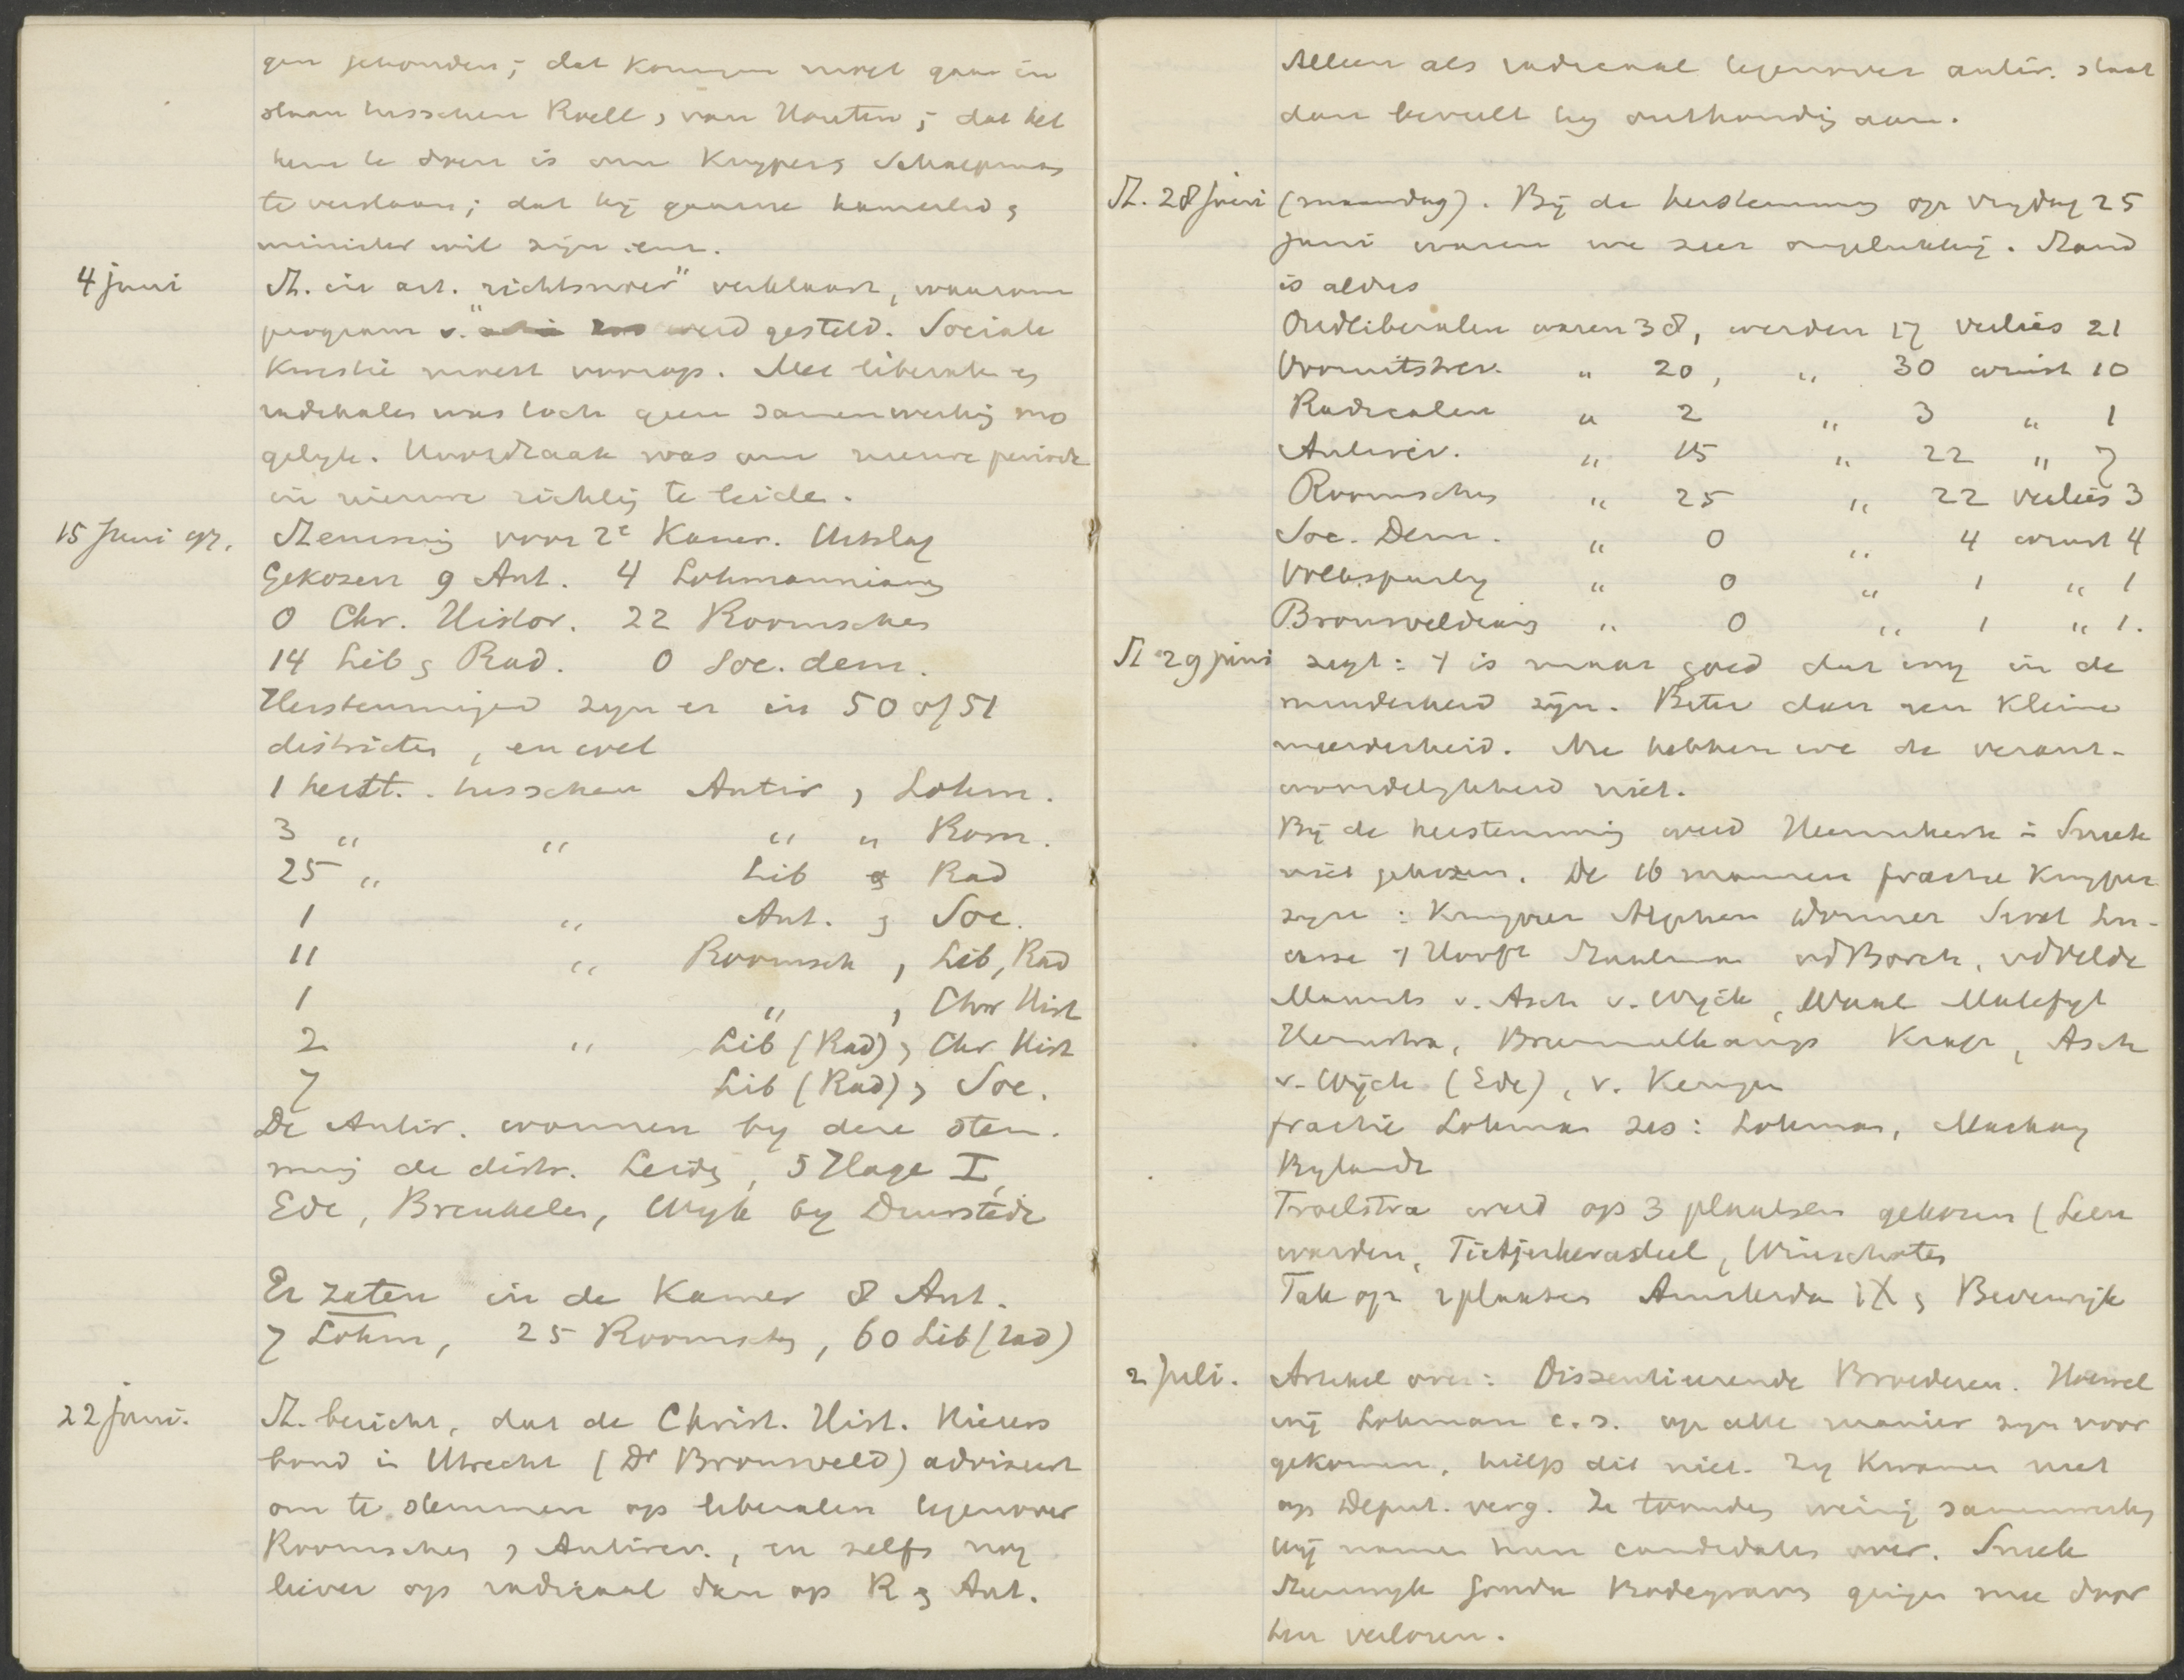 gen gehouden; dat Kamer moet gaan in
staan tusschen Roëll en van Houten; dat het
hem te doen is om Kuyper en Schaepman
te verslaan; dat hij gaarne kamerlid en
minister wil zijn enz.
4 juni St. in art. "richtsnoer" verklaart, waarom
program v. werd gesteld. Sociale
Kwestie moest voorop. Met liberale en
radikalen was toch geen samenwerking mo
gelijk. Hoofdzaak was om nieuwe periode
in nieuwe richting te leiden.
15 Juni 97. Stemming voor 2e Kamer. Uitslag
Gekozen 9 Ant. 4 Lohmannianen
0 Chr. Histor. 22 Roomschen
14 Lib en Rad. 0 Soc. dem.
Herstemmingen zijn er in 50 of 51
districten, en wel
1 herst. tusschen Antir en Lohm.
3 " " " " Rom.
25 " Lib en Rad
1 " Ant. en Soc.
11 " Roomsch en Lib, Rad
1 " en Chr Hist
2 " Lib (Rad) en Chr Hist
7 Lib (Rad) en Soc.
De Antir. wonnen bij deze stem.
ming de distr. Leiden, 's Hage I,
Ede, Breukelen, Wijk bij Duurstede
Er zaten in de Kamer 8 Ant.
7 Lohm, 25 Roomschen, 60 Lib (Rad)
22 juni. St. bericht, dat de Christ. Hist. Kiezers
bond in Utrecht (Dr Bronsveld) adviseert
om te stemmen op liberalen tegenover
Roomschen en Antirev., en zelfs nog
liever op radicaal dan op R en Ant.
Alleen als radicaal tegenover antir. staat
dan beveelt hij onthouding aan.
St. 28 Juni (maandag). Bij de herstemming op vrijdag 25
juni waren we zeer ongelukkig. Stand
is aldus
Oudliberalen waren 38, werden 17 verlies 21
Vooruitstrev. " 20, " 30 winst 10
Radicalen " 2 " 3 " 1
Antirev. " 15 " 22 " 7
Roomschen " 25 " 22 verlies 3
Soc. Dem. " 0 " 4 winst 4
Volkspartij " 0 " 1 " 1
Bronsveldiaan " 0 " 1 " 1.
St 29 juni zegt: 't is maar goed dat wij in de
minderheid zijn. Beter dan een kleine
meerderheid. Nu hebben we de verant-
woordelijkheid niet.
Bij de herstemming werd Heemskerk in Sneek
niet gekozen. De 16 mannen fractie Kuyper
zijn: Kuyper Alphen Donner Smeet Lu-
casse 't Hooft Staalman vd Borch, vd Velde
Mannts v. Asch v. Wijck, de Waal Malefijt
Heemstra, Brummelkamp Krap, Asch
v. Wijck (Ede), v. Kempen
fractie Lohman zes: Lohman, Mackay
Bylandt
Troelstra werd op 3 plaatsen gekozen (Leeu
warden, Tietjerksradeel, Winschoten
Tak op 2 plaatsen Amsterdam IX en Beverwijk
2 Juli. Artikel over: Dissentieerende Broederen. Hoewel
wij Lohman c.s. op alle manier zijn voor
gekomen, hielp dit niet. Zij kwamen niet
op Deput. verg. Ze toonden weinig samenwerking
Wij namen hun candidaten over. Sneek
Steenwijk Gouda Bodegraven gingen mee door
hen verloren.